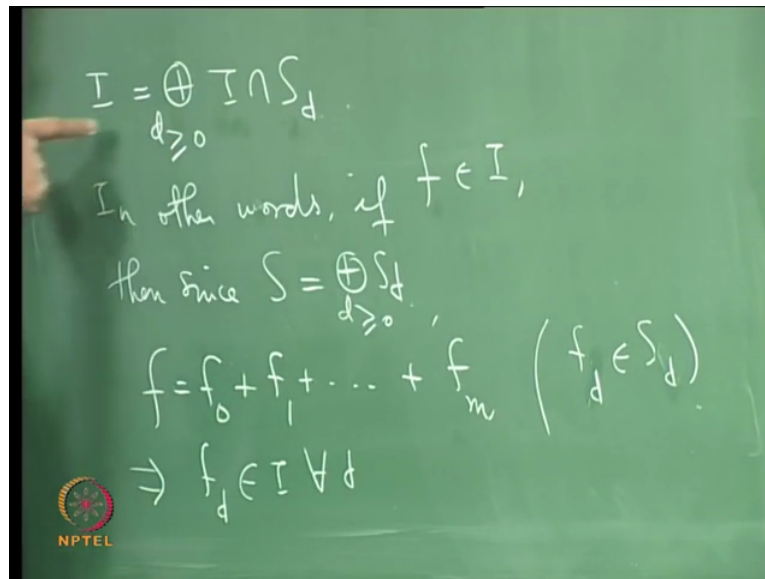 I = ⊕ I ∩ S_d.
d ≥ 0
In other words, if f ∈ I,
then since S = ⊕ S_d,
d ≥ 0
f = f_0 + f_1 + ... + f_m (f_d ∈ S_d).
⇒ f_d ∈ I ∀ d
NPTEL